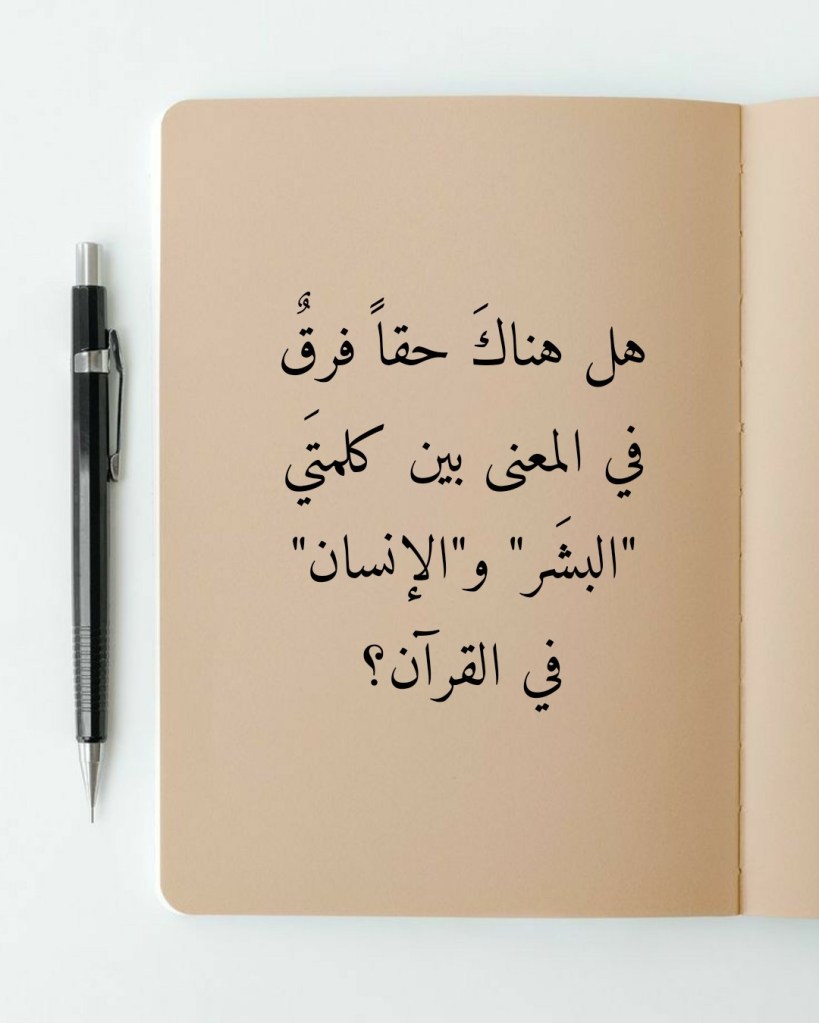 هل هناكَ حقاً فرقٌ
في المعنى بين كلمتَي
"البشَر" و"الإنسان"
في القرآن؟